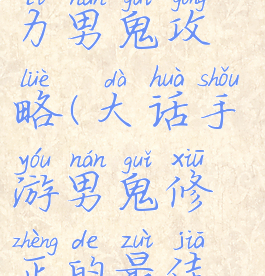 lì nán guǐ gōng
力男鬼攻
lüè dà huà shǒu
略(大话手
yóu nán guǐ xiū
游男鬼修
zhèng de zuì jiā
正的最佳